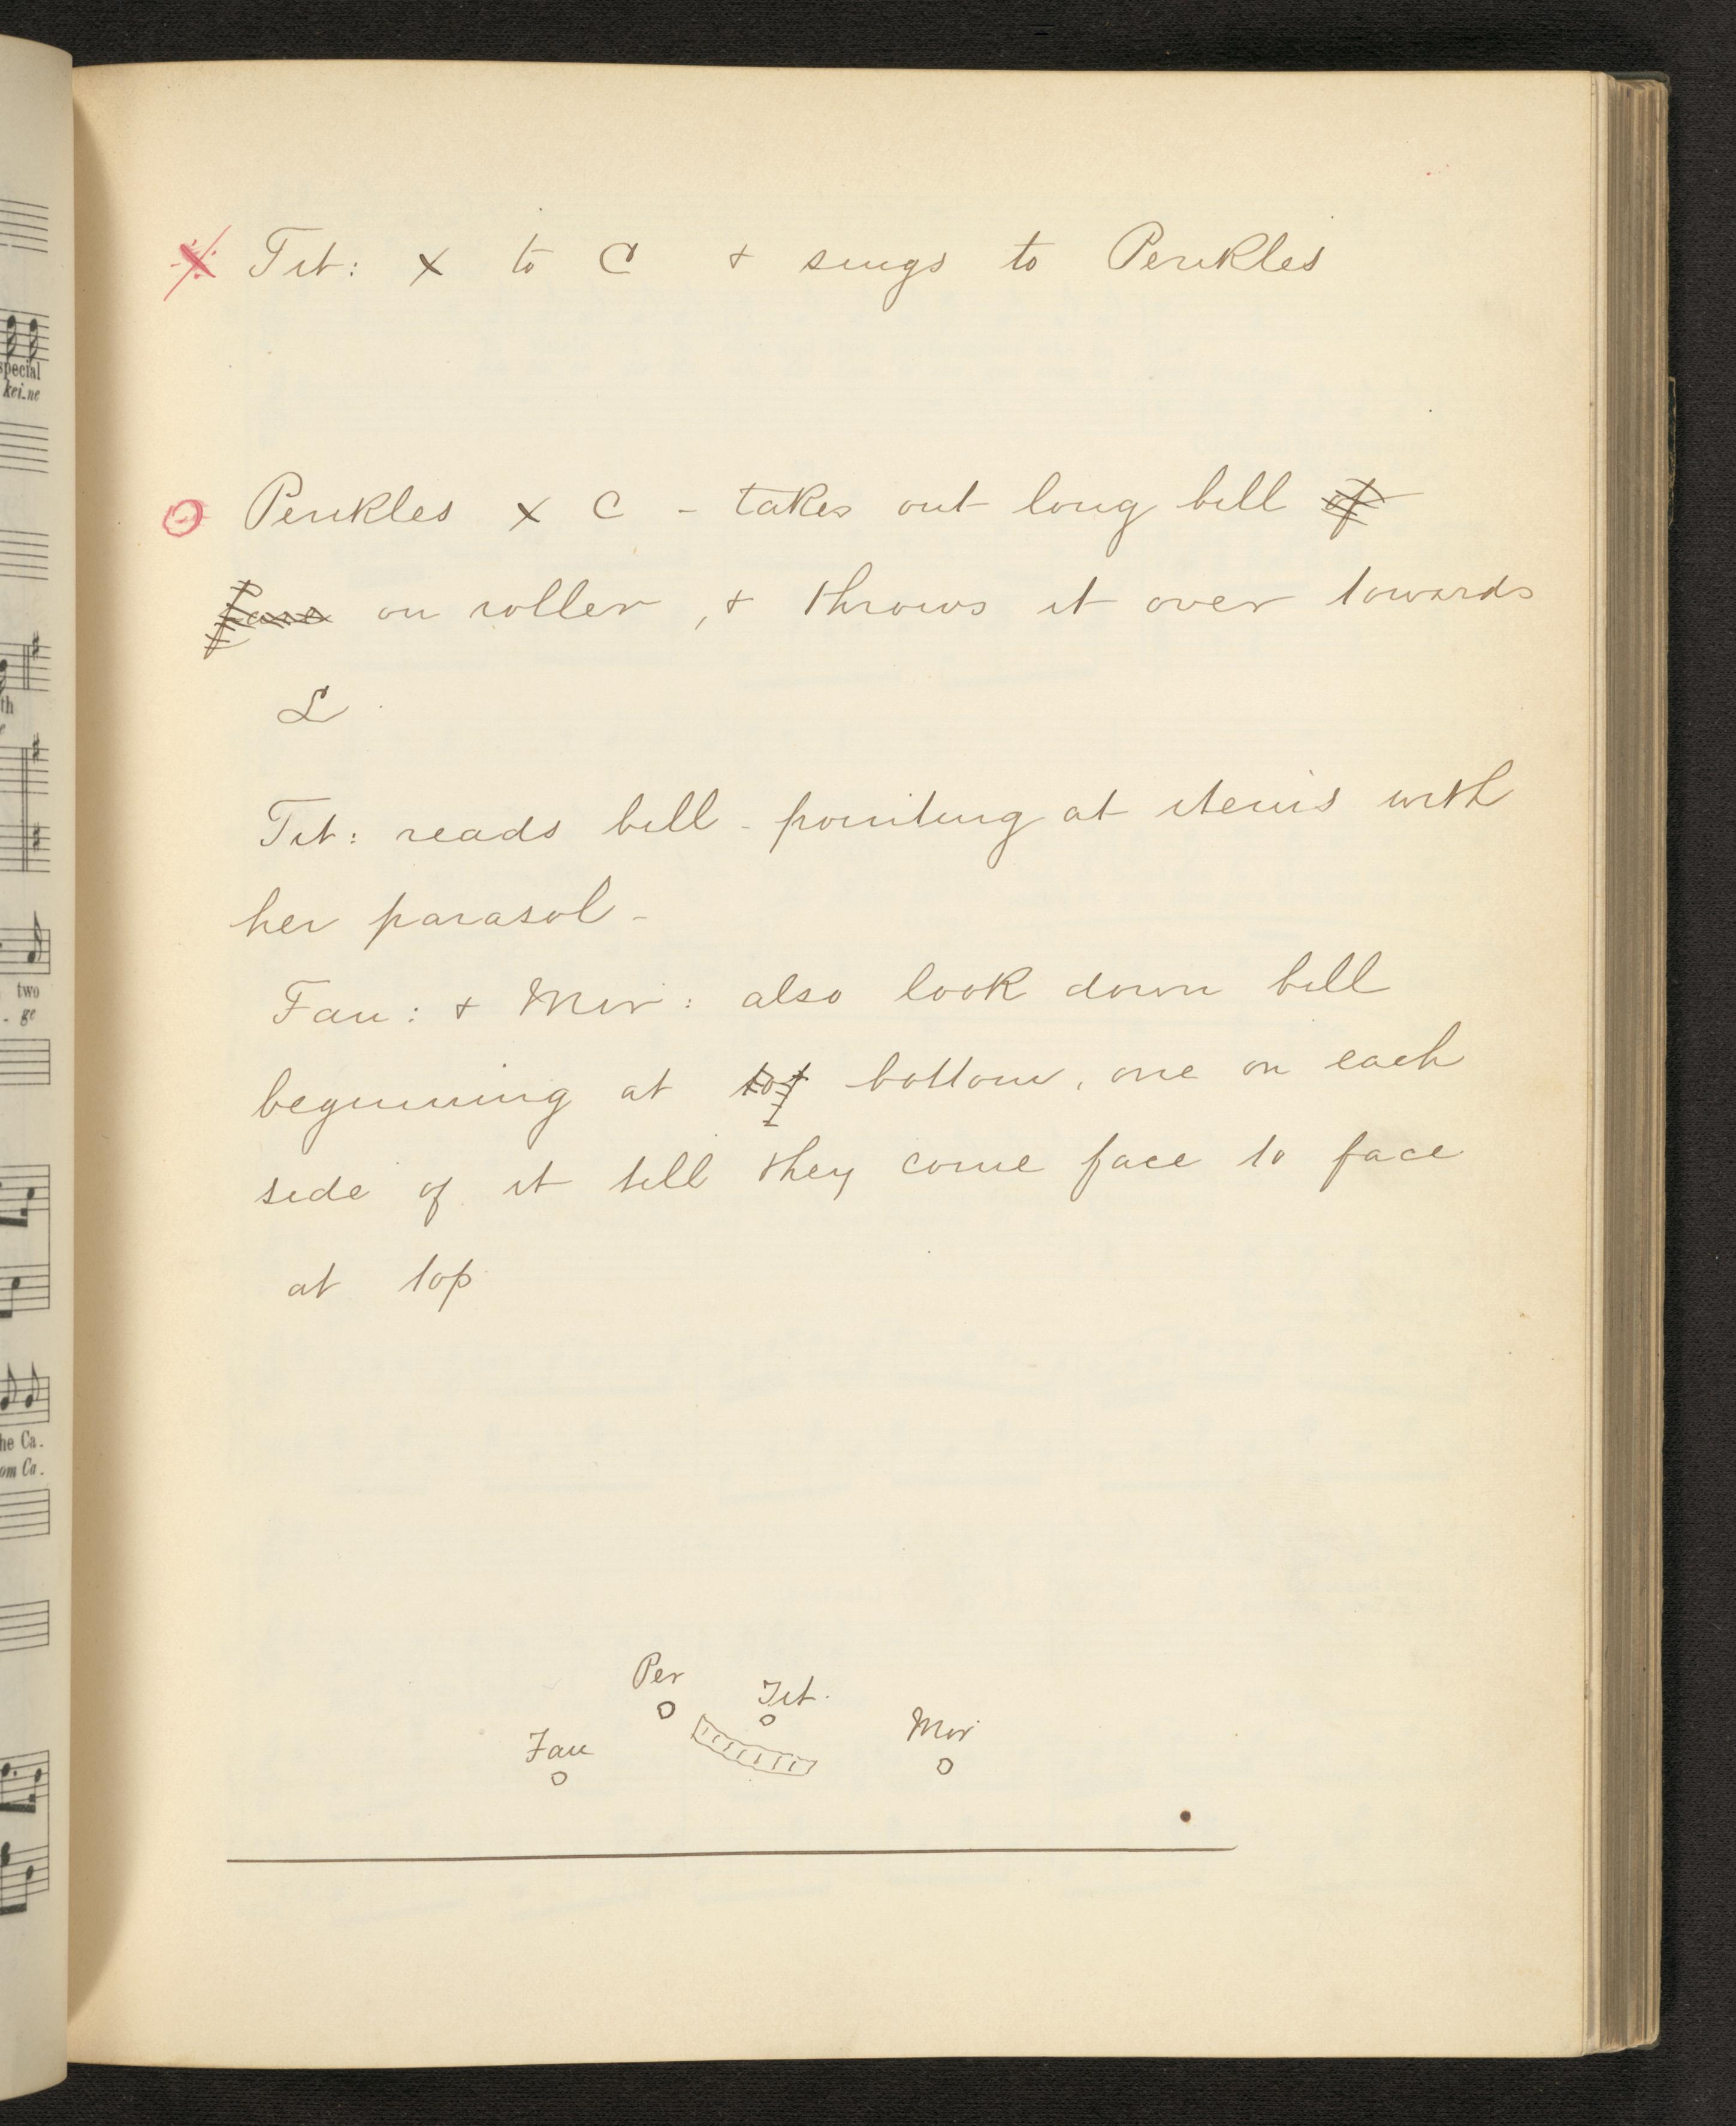 Tit: x to C + sings to Perikles
Perikles x C - takes out long bill of
fare on roller, + throws it over towards
L
Tit: reads bill - pointing at items with
her parasol -
Fan: + Mir: also look down bill
beginning at top bottom, one on each
side of it till they come face to face
at top
Per
Tit.
Mir
Fan
special
kei-ne
th
two
- ge
he Ca-
om Ca-